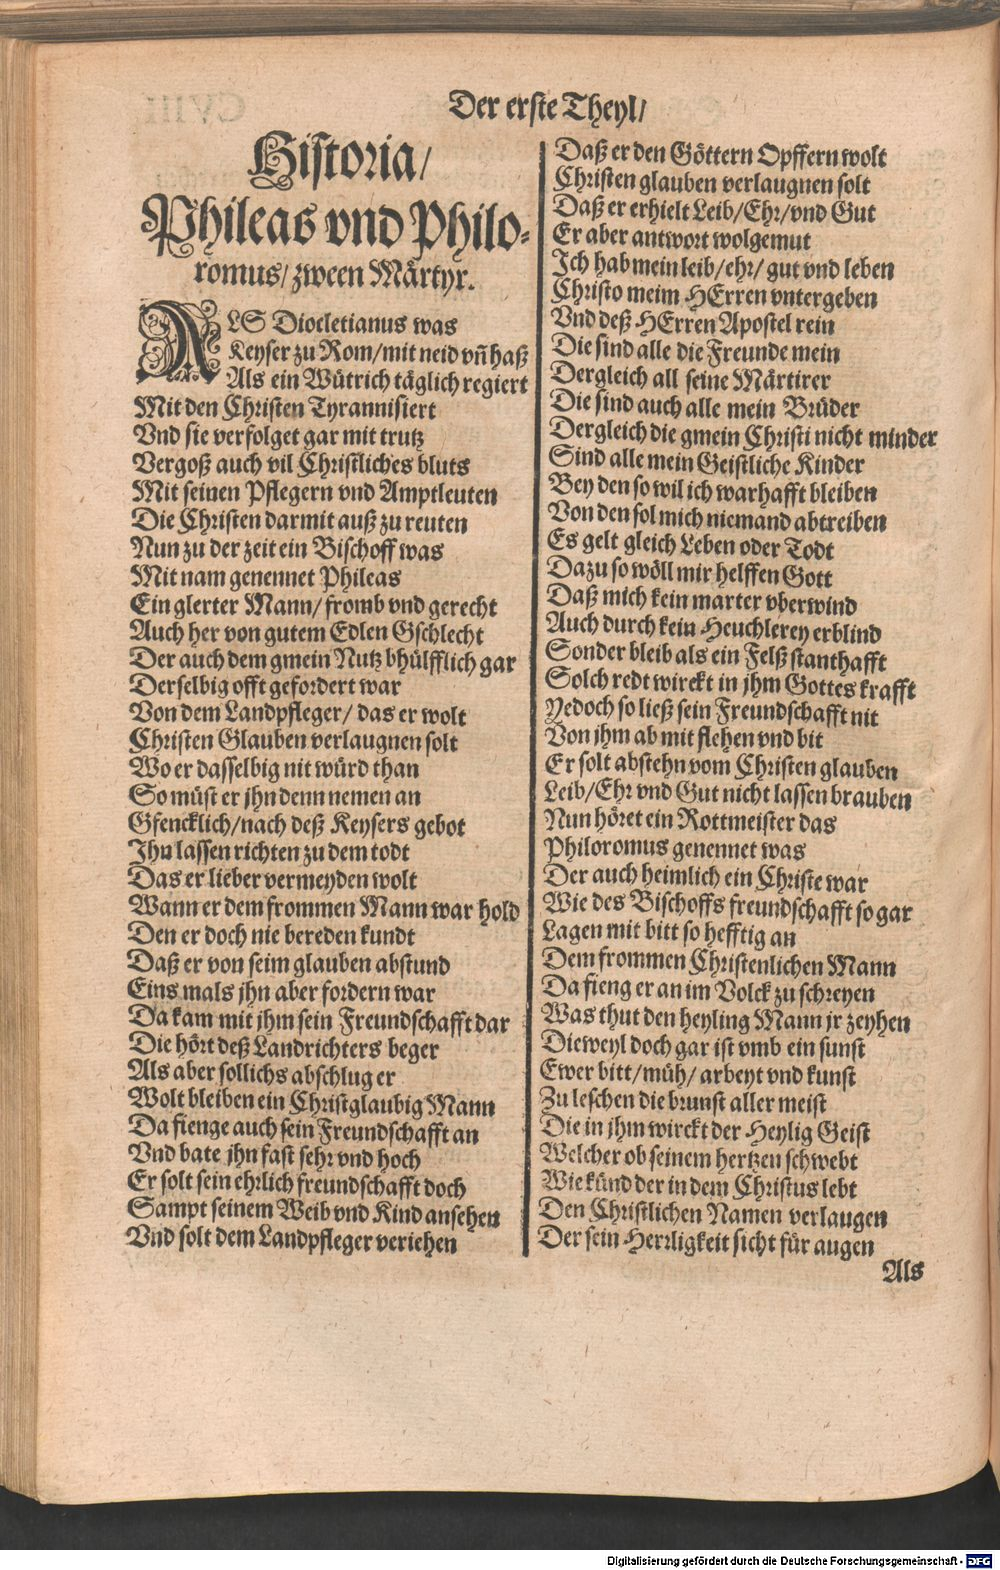 Der erste Theyl/
Historia/
Phileas vnd Philo-
romus/ zween Märtyr.
ALS Diocletianus was
Keyser zu Rom/ mit neid vñ haß
Als ein Wütrich täglich regiert
Mit den Christen Tyrannisiert
Vnd sie verfolget gar mit trutz
Vergoß auch vil Christliches bluts
Mit seinen Pflegern vnd Amptleuten
Die Christen darmit auß zu reuten
Nun zu der zeit ein Bischoff was
Mit nam genennet Phileas
Ein glerter Mann/ fromb vnd gerecht
Auch her von gutem Edlen Gschlecht
Der auch dem gmein Nutz bhülfflich gar
Derselbig offt gefordert war
Von dem Landpfleger/ das er wolt
Christen Glauben verlaugnen solt
Wo er dasselbig nit würd than
So müst er jhn denn nemen an
Gfencklich/ nach deß Keysers gebot
Jhn lassen richten zu dem todt
Das er lieber vermeyden wolt
Wann er dem frommen Mann war hold
Den er doch nie bereden kundt
Daß er von seim glauben abstund
Eins mals jhn aber fordern war
Da kam mit jhm sein Freundschafft dar
Die hört deß Landrichters beger
Als aber sollichs abschlug er
Wolt bleiben ein Christglaubig Mann
Da fienge auch sein Freundschafft an
Vnd bate jhn fast sehr vnd hoch
Er solt sein ehrlich freundschafft doch
Sampt seinem Weib vnd Kind ansehen
Vnd solt dem Landpfleger veriehen
Daß er den Göttern Opffern wolt
Christen glauben verlaugnen solt
Daß er erhielt Leib/ Ehr/ vnd Gut
Er aber antwort wolgemut
Ich hab mein leib/ ehr/ gut vnd leben
Christo meim HErren vntergeben
Vnd deß HErren Apostel rein
Die sind alle die Freunde mein
Dergleich all seine Märtirer
Die sind auch alle mein Brüder
Dergleich die gmein Christi nicht minder
Sind alle mein Geistliche Kinder
Bey den so wil ich warhafft bleiben
Von den sol mich niemand abtreiben
Es gelt gleich Leben oder Todt
Dazu so wöll mir helffen Gott
Daß mich kein marter vberwind
Auch durch kein Heuchlerey erblind
Sonder bleib als ein Felß stanthafft
Solch redt wirckt in jhm Gottes krafft
Yedoch so ließ sein Freundschafft nit
Von jhm ab mit flehen vnd bit
Er solt abstehn vom Christen glauben
Leib/ Ehr vnd Gut nicht lassen brauben
Nun höret ein Rottmeister das
Philoromus genennet was
Der auch heimlich ein Christe war
Wie des Bischoffs freundschafft so gar
Lagen mit bitt so hefftig an
Dem frommen Christenlichen Mann
Da fieng er an im Volck zu schreyen
Was thut den heyling Mann jr zeyhen
Dieweyl doch gar ist vmb ein sunst
Ewer bitt/ müh/ arbeyt vnd kunst
Zu leschen die brunst aller meist
Die in jhm wirckt der Heylig Geist
Welcher ob seinem hertzen schwebt
Wie künd der in dem Christus lebt
Den Christlichen Namen verlaugen
Der sein Herrligkeit sicht für augen
Als
Digitalisierung gefördert durch die Deutsche Forschungsgemeinschaft - DFG